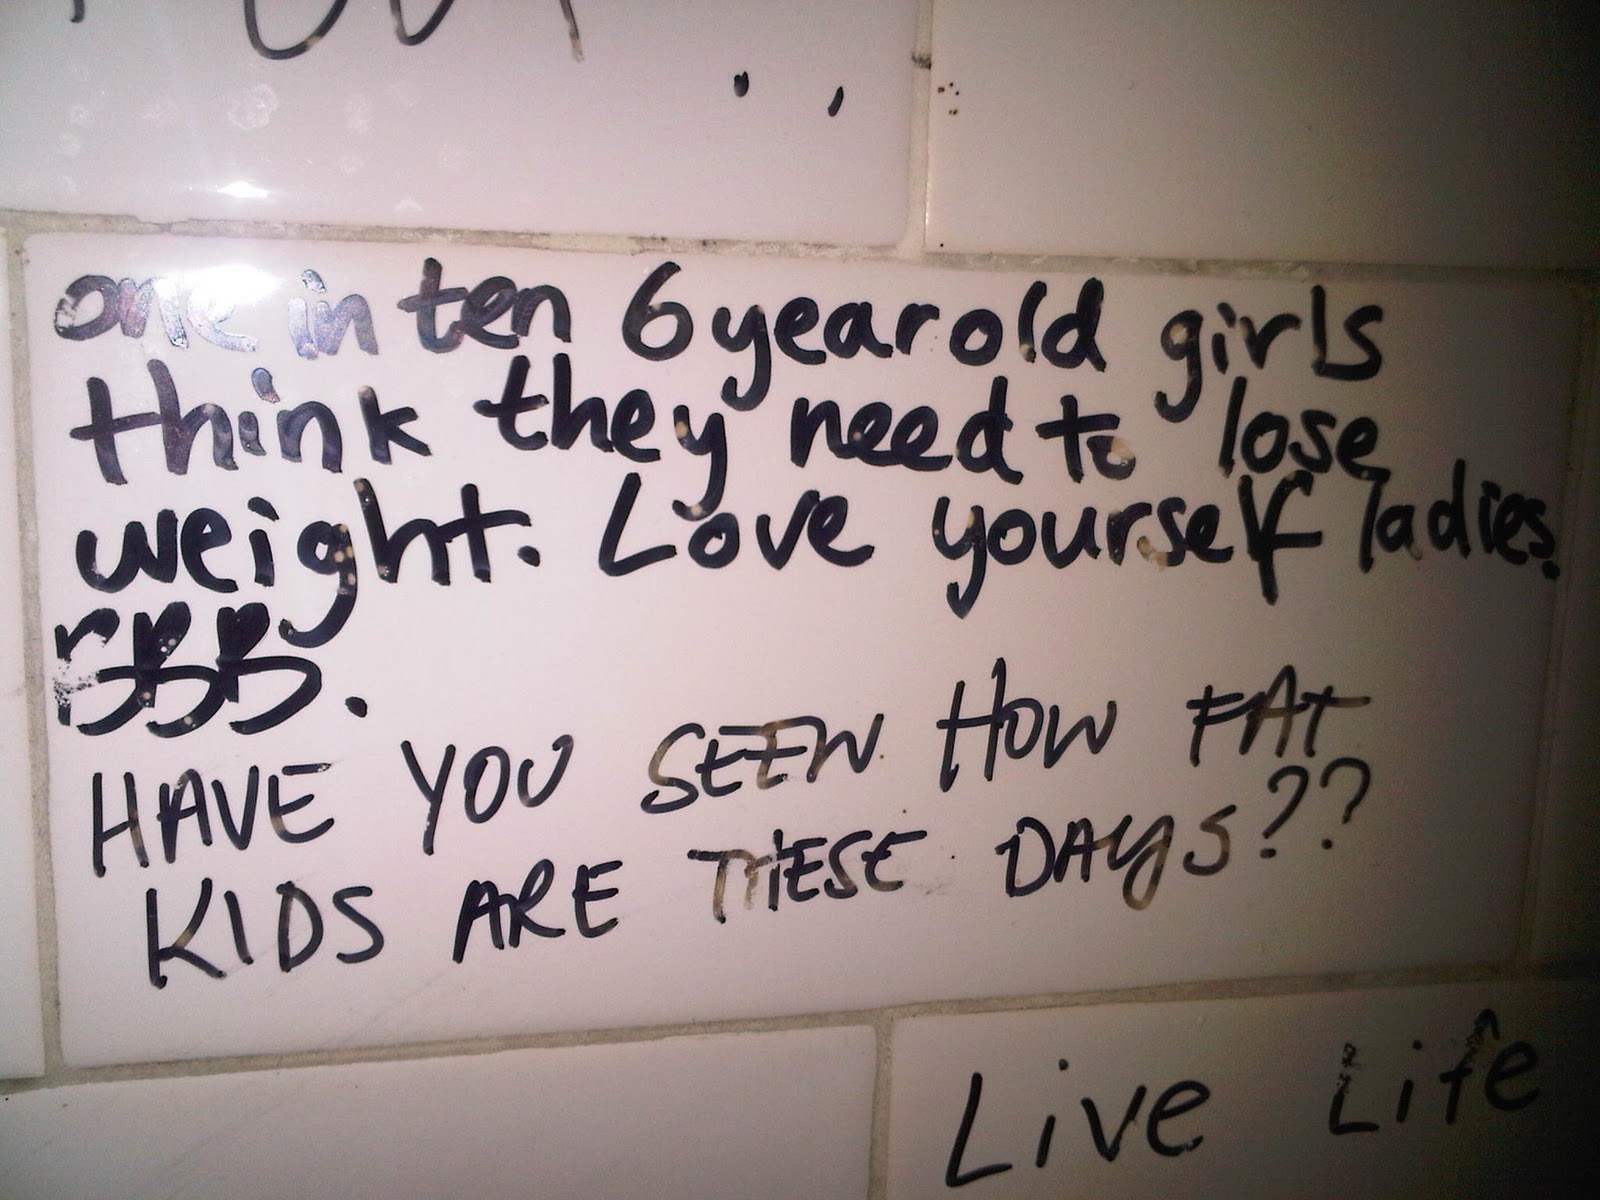 one in ten 6 year old girls
think they need to lose
weight. Love yourself ladies.
BBB.
HAVE YOU SEEN HOW FAT
KIDS ARE THESE DAYS??
Live Life